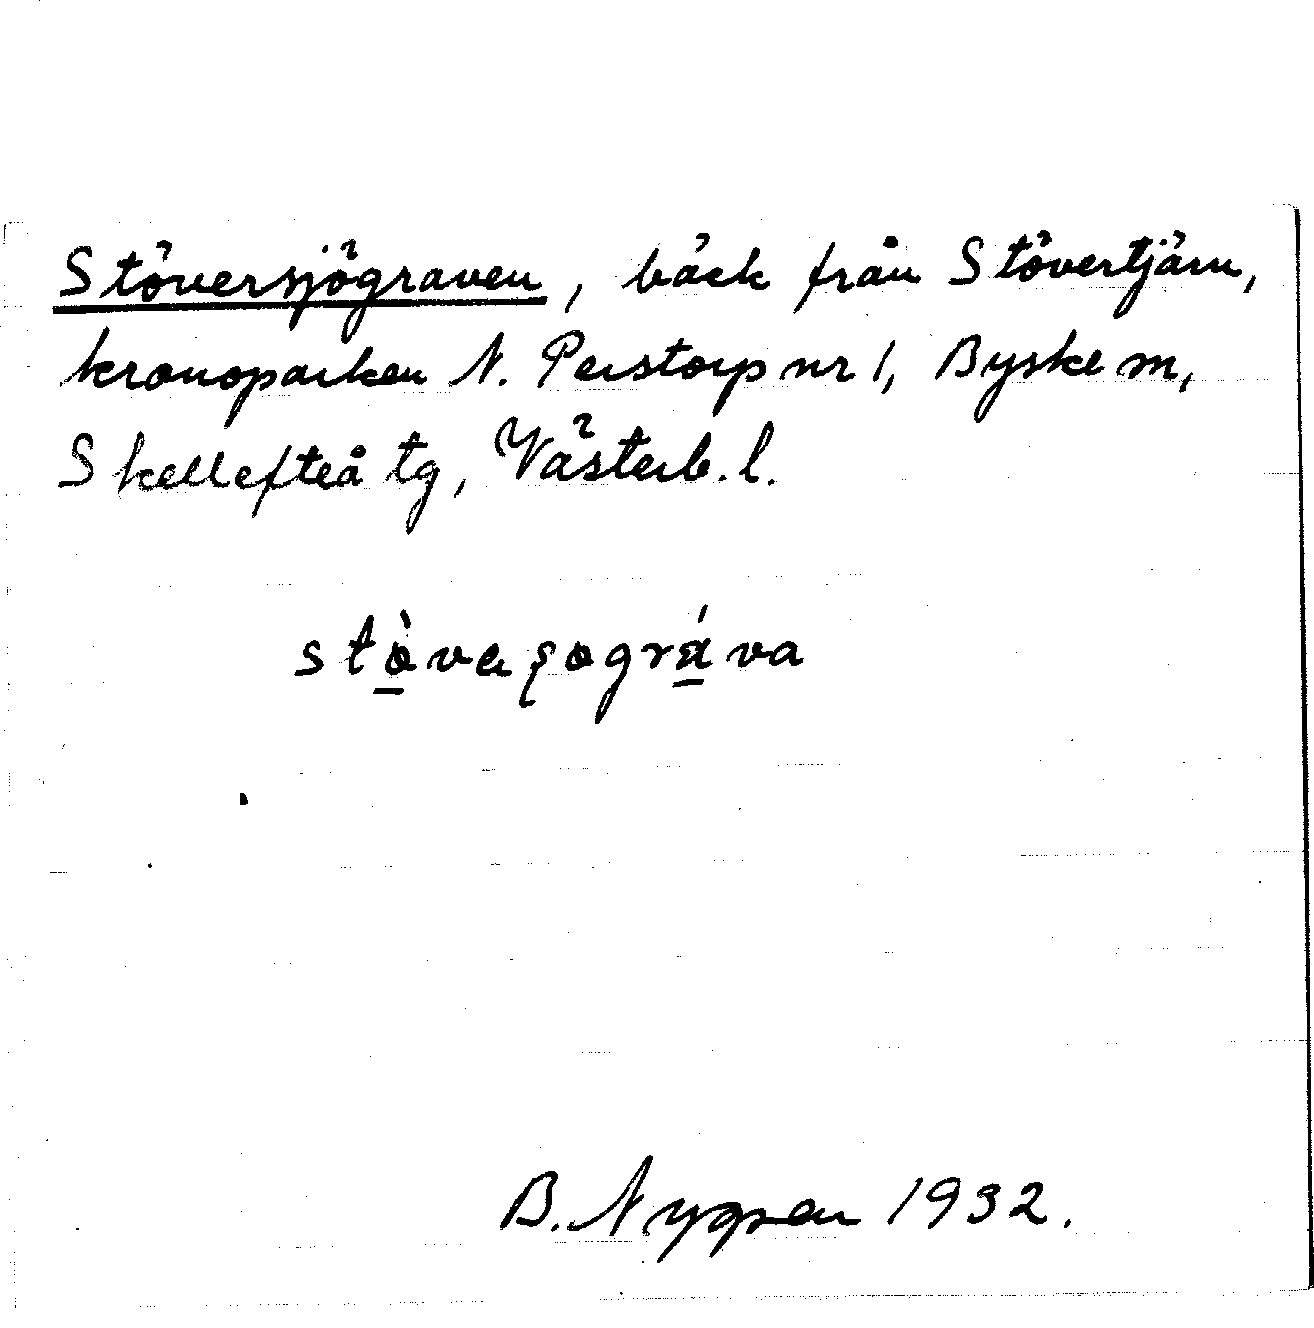 Stöversjögraven, bäck från Stövertjärn,
kronoparken N. Perstorp nr 1, Byske m,
Skellefteå tg, Västerb. l.
stòvaʂográva
B. Nygren 1932.